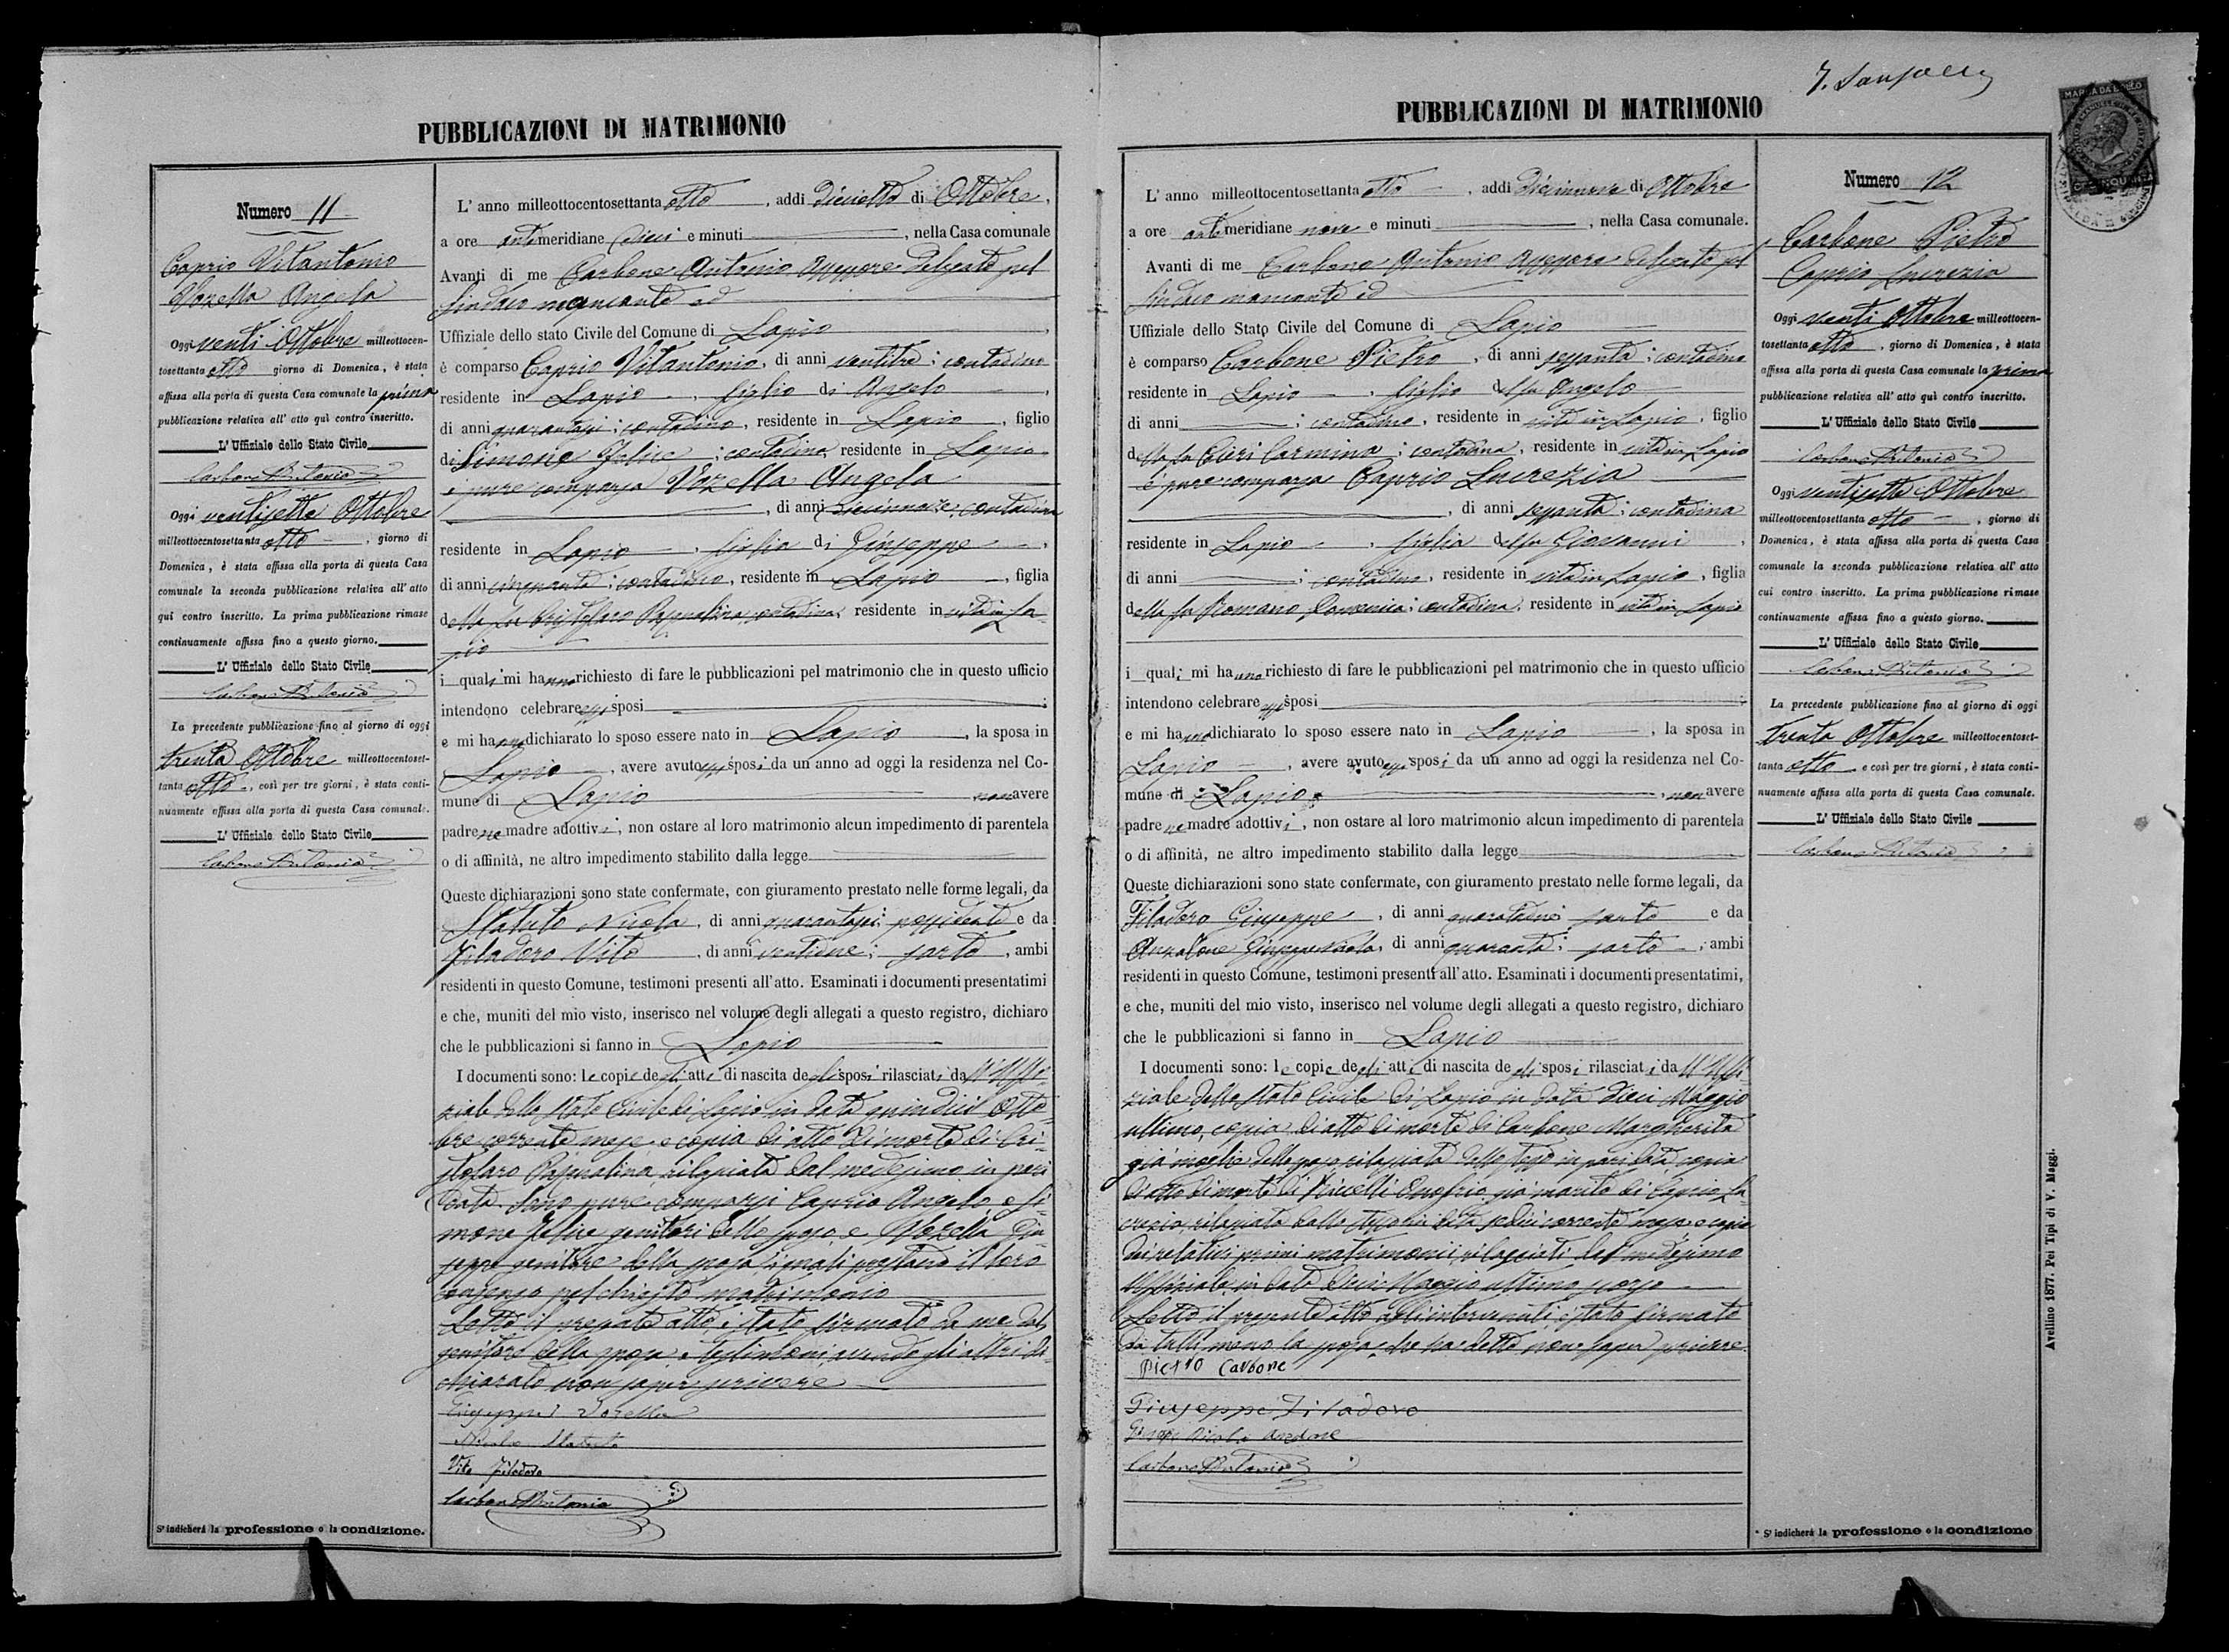 PUBBLICAZIONI DI MATRIMONIO
Numero 11
Caprio Vitantonio
Vozella Angela
Oggi venti Ottobre milleottocen-
tosettanta otto giorno di Domenica, è stata
affissa alla porta di questa Casa comunale la prima
pubblicazione relativa all' atto quì contro inscritto.
L' Uffiziale dello Stato Civile
Carbone Antonio
Oggi ventisette Ottobre
milleottocentosettanta otto, giorno di
Domenica, è stata affissa alla porta di questa Casa
comunale la seconda pubblicazione relativa all' atto
quì contro inscritto. La prima pubblicazione rimase
continuamente affissa fino a questo giorno.
L' Uffiziale dello Stato Civile
Carbone Antonio
La precedente pubblicazione fino al giorno di oggi
trenta Ottobre milleottocentoset-
tanta otto, così per tre giorni, è stata conti-
nuamente affissa alla porta di questa Casa comunale.
L' Uffiziale dello Stato Civile
Carbone Antonio
S' indicherà la professione o la condizione.
L' anno milleottocentosettanta otto, addi dieciotto di Ottobre,
a ore antimeridiane dieci e minuti, nella Casa comunale
Avanti di me Carbone Antonio Assessore Delegato pel
Sindaco mancante ed
Uffiziale dello stato Civile del Comune di Lapio
è comparso Caprio Vitantonio, di anni ventitre; contadino
residente in Lapio, figlio di Angelo,
di anni quarantasei; contadino, residente in Lapio, figlio
di Simone Felice; contadina residente in Lapio
è pure comparsa Vozella Angela
, di anni diecinnove; contadina
residente in Lapio, figlia di Giuseppe,
di anni cinquanta; contadino, residente in Lapio, figlia
della fu Cristofaro Pasqualina contadina, residente in vita in La-
pio
i quali mi hanno richiesto di fare le pubblicazioni pel matrimonio che in questo ufficio
intendono celebrare essi sposi;
e mi hanno dichiarato lo sposo essere nato in Lapio, la sposa in
Lapio, avere avuto essi sposi da un anno ad oggi la residenza nel Co-
mune di Lapio non avere
padre ne madre adottivi, non ostare al loro matrimonio alcun impedimento di parentela
o di affinità, ne altro impedimento stabilito dalla legge
Queste dichiarazioni sono state confermate, con giuramento prestato nelle forme legali, da
Statuto Nicola, di anni quarantasei possidente e da
Filadoro Vito, di anni ventidue; sarto, ambi
residenti in questo Comune, testimoni presenti all' atto. Esaminati i documenti presentatimi
e che, muniti del mio visto, inserisco nel volume degli allegati a questo registro, dichiaro
che le pubblicazioni si fanno in Lapio
I documenti sono: le copie degli atti di nascita degli sposi rilasciati dall'Uffi-
ziale dello Stato Civile di Lapio in data quindici Otto-
bre corrente mese e copia di atto di morte di Cri-
stofaro Pasqualina rilasciata dal medesimo in pari
data. Sono pure comparsi Caprio Angelo, e Si-
mone Felice genitori dello sposo, e Vozella Giu-
seppe genitore della sposa, i quali prestano il loro
consenso pel chiesto matrimonio
Letto il presente atto, è stato firmato da me dal
genitore della sposa e testimoni, avendo gli altri di-
chiarato non saper scrivere
Giuseppe Vozella
Nicola Statuto
Vito Filadoro
Carbone Antonio
PUBBLICAZIONI DI MATRIMONIO
MARCA DA BOLLO
L' anno milleottocentosettanta otto, addi diecinnove di Ottobre
a ore antimeridiane nove e minuti, nella Casa comunale.
Avanti di me Carbone Antonio Assessore delegato pel
Sindaco mancante ed
Uffiziale dello Stato Civile del Comune di Lapio
è comparso Carbone Pietro, di anni sessanta; contadino
residente in Lapio, figlio del fu Angelo
di anni; contadino, residente in vita in Lapio, figlio
della fu Cilori Carmina; contadina, residente in vita in Lapio
è pure comparsa Caprio Lucrezia
, di anni sessanta; contadina
residente in Lapio, figlia del fu Giovanni,
di anni; contadino, residente in vita in Lapio, figlia
della fu Romano Domenica; contadina, residente in vita in Lapio
i quali mi hanno richiesto di fare le pubblicazioni pel matrimonio che in questo ufficio
intendono celebrare essi sposi;
e mi hanno dichiarato lo sposo essere nato in Lapio, la sposa in
Lapio, avere avuto essi sposi da un anno ad oggi la residenza nel Co-
mune di Lapio, non avere
padre ne madre adottivi, non ostare al loro matrimonio alcun impedimento di parentela
o di affinità, ne altro impedimento stabilito dalla legge
Queste dichiarazioni sono state confermate, con giuramento prestato nelle forme legali, da
Filadoro Giuseppe, di anni quarantadue; sarto e da
Anzalone Giuseppe Nicola, di anni quaranta; sarto, ambi
residenti in questo Comune, testimoni presenti all' atto. Esaminati i documenti presentatimi,
e che, muniti del mio visto, inserisco nel volume degli allegati a questo registro, dichiaro
che le pubblicazioni si fanno in Lapio
I documenti sono: le copie degli atti di nascita degli sposi rilasciati dall'Uffi-
ziale dello Stato Civile di Lapio in data dieci Maggio
ultimo, copia di atto di morte di Carbone Margherita
già moglie dello sposo rilasciata dallo stesso in pari data, copia
di atto di morte di Onofrio già marito di Caprio Lu-
crezia, rilasciata dallo stesso in data sedici corrente mese e copia
dei relativi primi matrimonii, rilasciati dal medesimo
Uffiziale in data dieci Maggio ultimo scorso
Letto il presente atto agl'intervenuti, è stato firmato
da tutti meno la sposa che ha detto non saper scrivere.
Pietro Carbone
Giuseppe Filadoro
Giuseppe Nicola Anzalone
Carbone Antonio
Numero 12
Carbone Pietro
Caprio Lucrezia
Oggi venti Ottobre milleottocen-
tosettanta otto, giorno di Domenica, è stata
affissa alla porta di questa Casa comunale la prima
pubblicazione relativa all' atto quì contro inscritto.
L' Uffiziale dello Stato Civile
Carbone Antonio
Oggi ventisette Ottobre
milleottocentosettanta otto, giorno di
Domenica, è stata affissa alla porta di questa Casa
comunale la seconda pubblicazione relativa all' atto
cui contro inscritto. La prima pubblicazione rimase
continuamente affissa fino a questo giorno.
L' Uffiziale dello Stato Civile
Carbone Antonio
La precedente pubblicazione fino al giorno di oggi
trenta Ottobre milleottocentoset-
tanta otto e così per tre giorni, è stata conti-
nuamente affissa alla porta di questa Casa comunale.
L' Uffiziale dello Stato Civile
Carbone Antonio
* S' indicherà la professione o la condizione
Avellino 1877. Pei Tipi di V. Maggi.